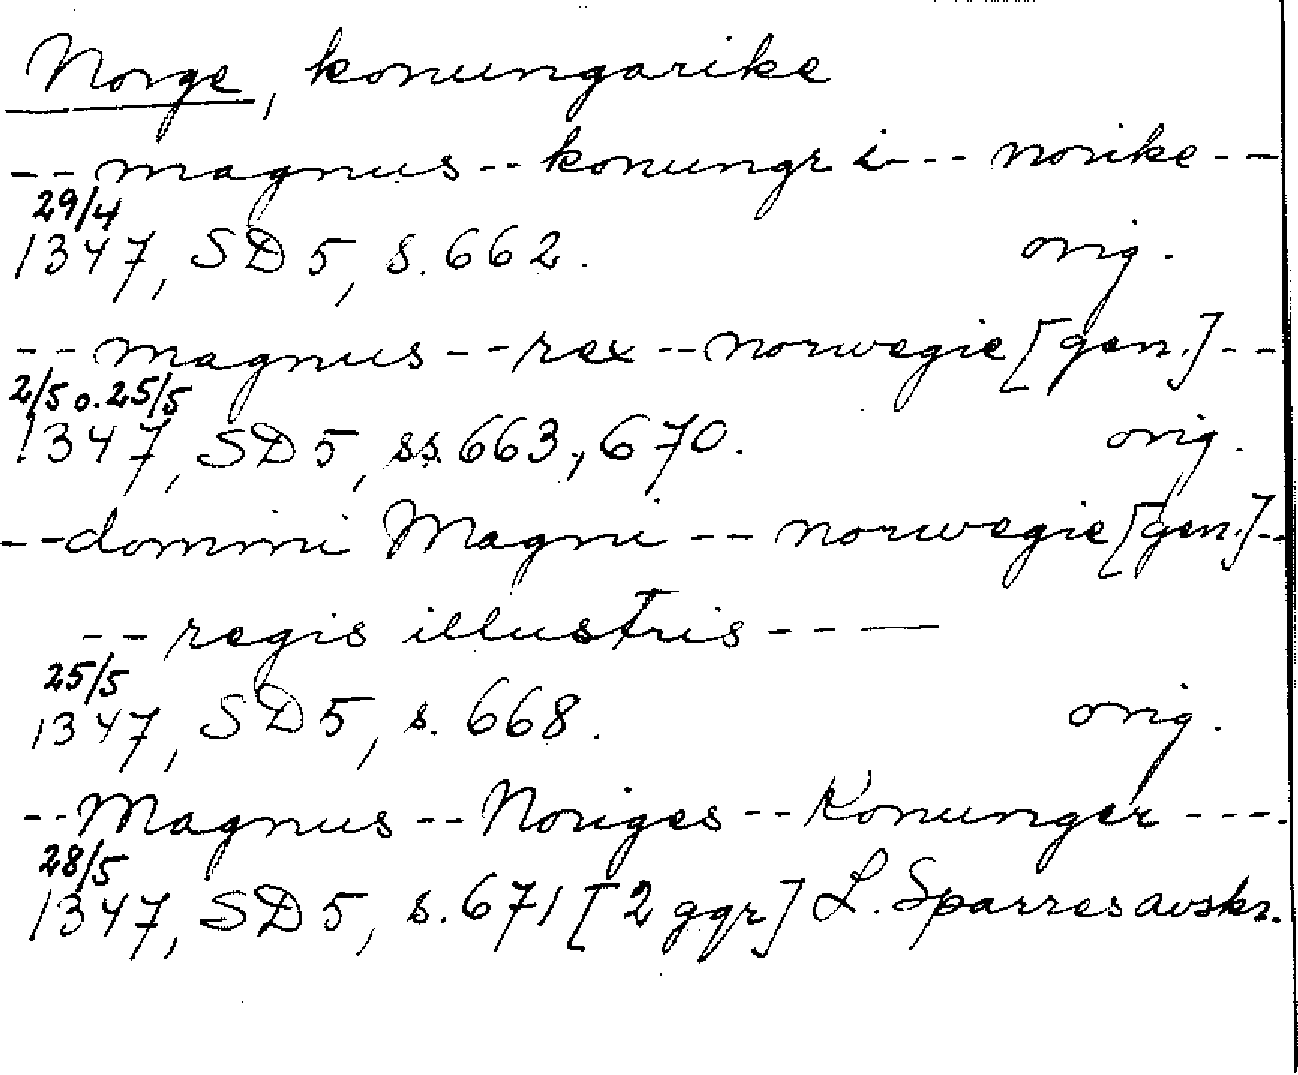 Norge, konungarike
-- magnus -- konungr i -- norike --
29/4
1347, SD 5, s. 662. orig.
-- magnus -- rex -- norwegie [gen.] --
2/5 o. 25/5
1347, SD 5, ss. 663, 670. orig.
-- domini Magni -- norwegie [gen.] --
-- regis illustris ----
25/5
1347, SD 5, s. 668. orig.
-- Magnus -- Noriges -- Konunger ----
28/5
1347, SD 5, s. 671 [2 ggr] L. Sparres avskr.